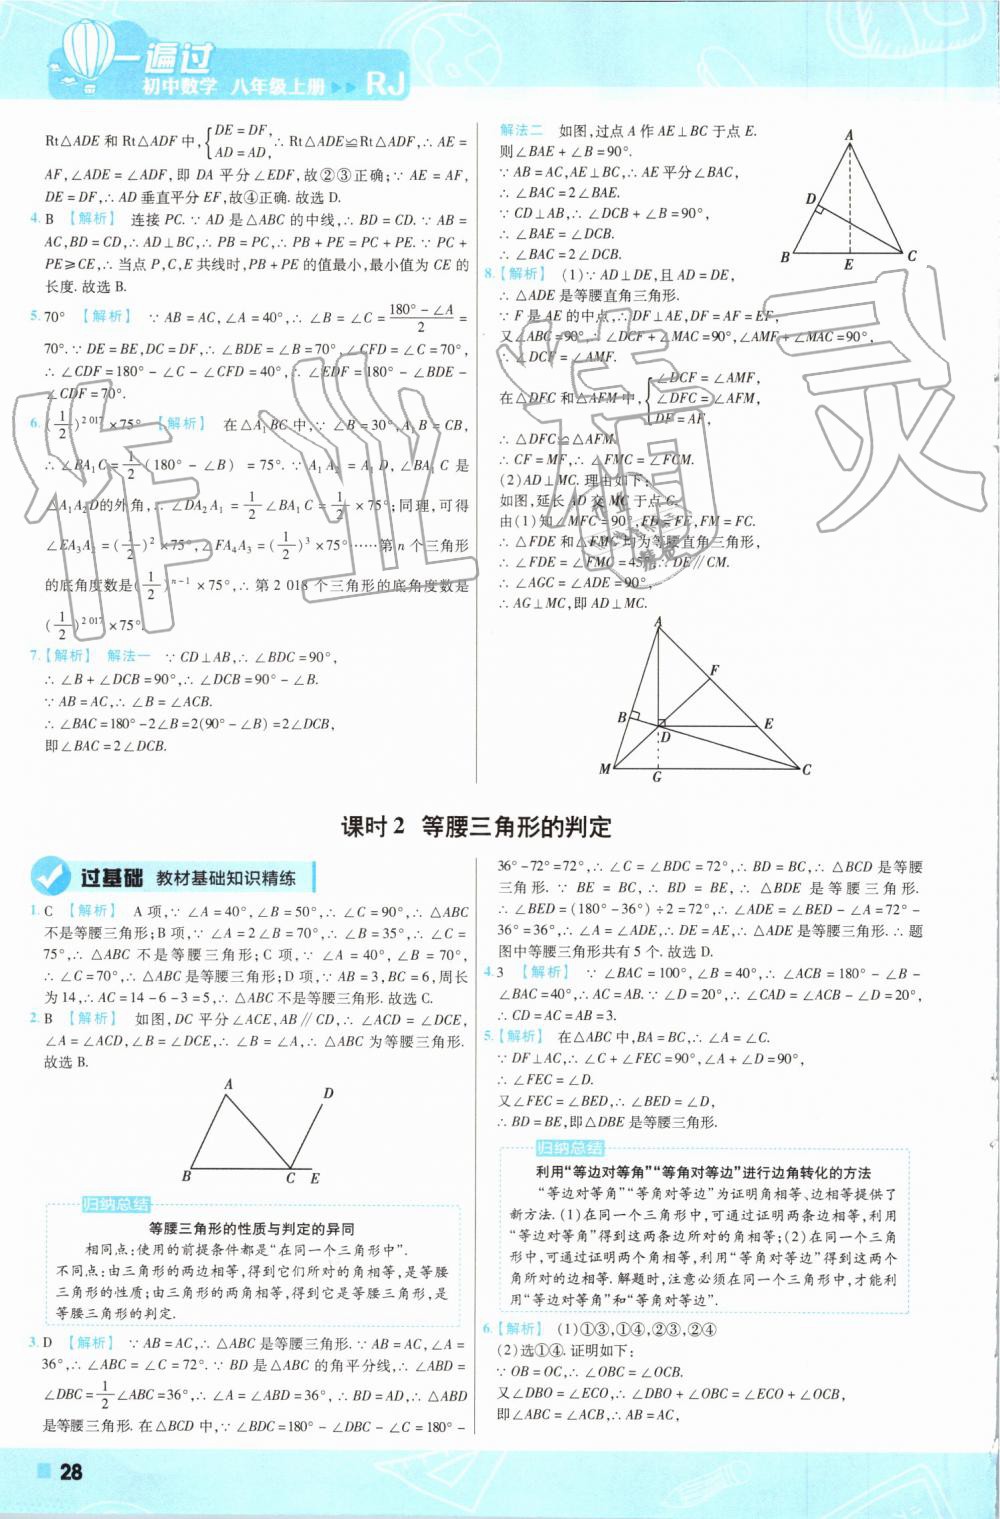 一遍过
初中数学 八年级上册 RJ
Rt△ADE 和 Rt△ADF 中,{DE=DF, AD=AD,∴Rt△ADE≌Rt△ADF,∴AE=
AF,∠ADE=∠ADF,即 DA 平分∠EDF,故②③正确;∵AE=AF,
DE=DF,∴AD 垂直平分 EF,故④正确.故选 D.
4. B 【解析】 连接 PC.∵AD 是△ABC 的中线,∴BD=CD.∵AB=
AC,BD=CD,∴AD⊥BC,∴PB=PC,∴PB+PE=PC+PE.∵PC+
PE≥CE,∴当点 P,C,E 共线时,PB+PE 的值最小,最小值为 CE 的
长度.故选 B.
5. 70° 【解析】 ∵AB=AC,∠A=40°,∴∠B=∠C=(180°-∠A)/2=
70°.∵DE=BE,DC=DF,∴∠BDE=∠B=70°,∠CFD=∠C=70°,
∴∠CDF=180°-∠C-∠CFD=40°,∴∠EDF=180°-∠BDE-
∠CDF=70°.
6. (1/2)^2 017×75° 【解析】 在△A₁BC 中,∵∠B=30°,A₁B=CB,
∴∠BA₁C=1/2(180°-∠B)=75°.∵A₁A₂=A₁D,∠BA₁C 是
△A₁A₂D的外角,∴∠DA₂A₁=1/2∠BA₁C=1/2×75°;同理,可得
∠EA₃A₂=(1/2)²×75°,∠FA₄A₃=(1/2)³×75°……第 n 个三角形
的底角度数是(1/2)^n-1×75°,∴第 2 018 个三角形的底角度数是
(1/2)^2 017×75°.
7.【解析】 解法一 ∵CD⊥AB,∴∠BDC=90°,
∴∠B+∠DCB=90°,∴∠DCB=90°-∠B.
∵AB=AC,∴∠B=∠ACB.
∴∠BAC=180°-2∠B=2(90°-∠B)=2∠DCB,
即∠BAC=2∠DCB.
解法二 如图,过点 A 作 AE⊥BC 于点 E.
则∠BAE+∠B=90°.
∵AB=AC,AE⊥BC,∴AE 平分∠BAC,
∴∠BAC=2∠BAE.
∵CD⊥AB,∴∠DCB+∠B=90°,
∴∠BAE=∠DCB.
∴∠BAC=2∠DCB.
A
D
B
E
C
8.【解析】 (1)∵AD⊥DE,且 AD=DE,
∴△ADE 是等腰直角三角形.
∵F 是 AE 的中点,∴DF⊥AE,DF=AF=EF,
又∠ABC=90°,∴∠DCF+∠MAC=90°,∠AMF+∠MAC=90°,
∴∠DCF=∠AMF.
在△DFC 和△AFM 中,{∠DCF=∠AMF, ∠DFC=∠AFM, DF=AF,
∴△DFC≌△AFM.
∴CF=MF,∴∠FMC=∠FCM.
(2)AD⊥MC.理由如下:
如图,延长 AD 交 MC 于点 G.
由(1)知∠MFC=90°,FD=FE,FM=FC.
∴△FDE 和△FMC 均为等腰直角三角形,
∴∠FDE=∠FMC=45°,∴DE∥CM.
∴∠AGC=∠ADE=90°,
∴AG⊥MC,即 AD⊥MC.
A
F
B
D
E
M
G
C
课时 2 等腰三角形的判定
过基础 教材基础知识精练
1. C 【解析】 A 项,∵∠A=40°,∠B=50°,∴∠C=90°,∴△ABC
不是等腰三角形;B 项,∵∠A=2∠B=70°,∴∠B=35°,∴∠C=
75°,∴△ABC 不是等腰三角形;C 项,∵∠A=40°,∠B=70°,
∴∠C=70°,∴△ABC 是等腰三角形;D 项,∵AB=3,BC=6,周长
为 14,∴AC=14-6-3=5,∴△ABC 不是等腰三角形.故选 C.
2. B 【解析】 如图,DC 平分∠ACE,AB∥CD,∴∠ACD=∠DCE,
∠A=∠ACD,∠B=∠DCE,∴∠B=∠A,∴△ABC 为等腰三角形.
故选 B.
A
D
B
C
E
归纳总结
等腰三角形的性质与判定的异同
相同点:使用的前提条件都是“在同一个三角形中”.
不同点:由三角形的两边相等,得到它们所对的角相等,是等腰
三角形的性质;由三角形的两角相等,得到它是等腰三角形,是
等腰三角形的判定.
3. D 【解析】 ∵AB=AC,∴△ABC 是等腰三角形.∵AB=AC,∠A=
36°,∴∠ABC=∠C=72°.∵BD 是△ABC 的角平分线,∴∠ABD=
∠DBC=1/2∠ABC=36°,∴∠A=∠ABD=36°,∴BD=AD,∴△ABD
是等腰三角形.在△BCD 中,∵∠BDC=180°-∠DBC-∠C=180°-
36°-72°=72°,∴∠C=∠BDC=72°,∴BD=BC,∴△BCD 是等腰
三角形.∵BE=BC,∴BD=BE,∴△BDE 是等腰三角形.
∴∠BED=(180°-36°)÷2=72°,∴∠ADE=∠BED-∠A=72°-
36°=36°,∴∠A=∠ADE,∴DE=AE,∴△ADE 是等腰三角形.∴题
图中等腰三角形共有 5 个.故选 D.
4. 3 【解析】 ∵∠BAC=100°,∠B=40°,∴∠ACB=180°-∠B-
∠BAC=40°,∴AC=AB.∵∠D=20°,∴∠CAD=∠ACB-∠D=20°,
∴CD=AC=AB=3.
5.【解析】 在△ABC 中,BA=BC,∴∠A=∠C.
∵DF⊥AC,∴∠C+∠FEC=90°,∠A+∠D=90°,
∴∠FEC=∠D.
又∠FEC=∠BED,∴∠BED=∠D,
∴BD=BE,即△DBE 是等腰三角形.
归纳总结
利用“等边对等角”“等角对等边”进行边角转化的方法
“等边对等角”“等角对等边”为证明角相等、边相等提供了
新方法.(1)在同一个三角形中,可通过证明两条边相等,利用
“等边对等角”得到这两条边所对的角相等;(2)在同一个三角
形中,可通过证明两个角相等,利用“等角对等边”得到这两个
角所对的边相等.解题时,注意必须在同一个三角形中,才能利
用“等边对等角”和“等角对等边”.
6.【解析】 (1)①③,①④,②③,②④
(2)选①④.证明如下:
∵OB=OC,∴∠OBC=∠OCB.
又∠DBO=∠ECO,∴∠DBO+∠OBC=∠ECO+∠OCB,
即∠ABC=∠ACB,∴AB=AC,
28
作业精灵